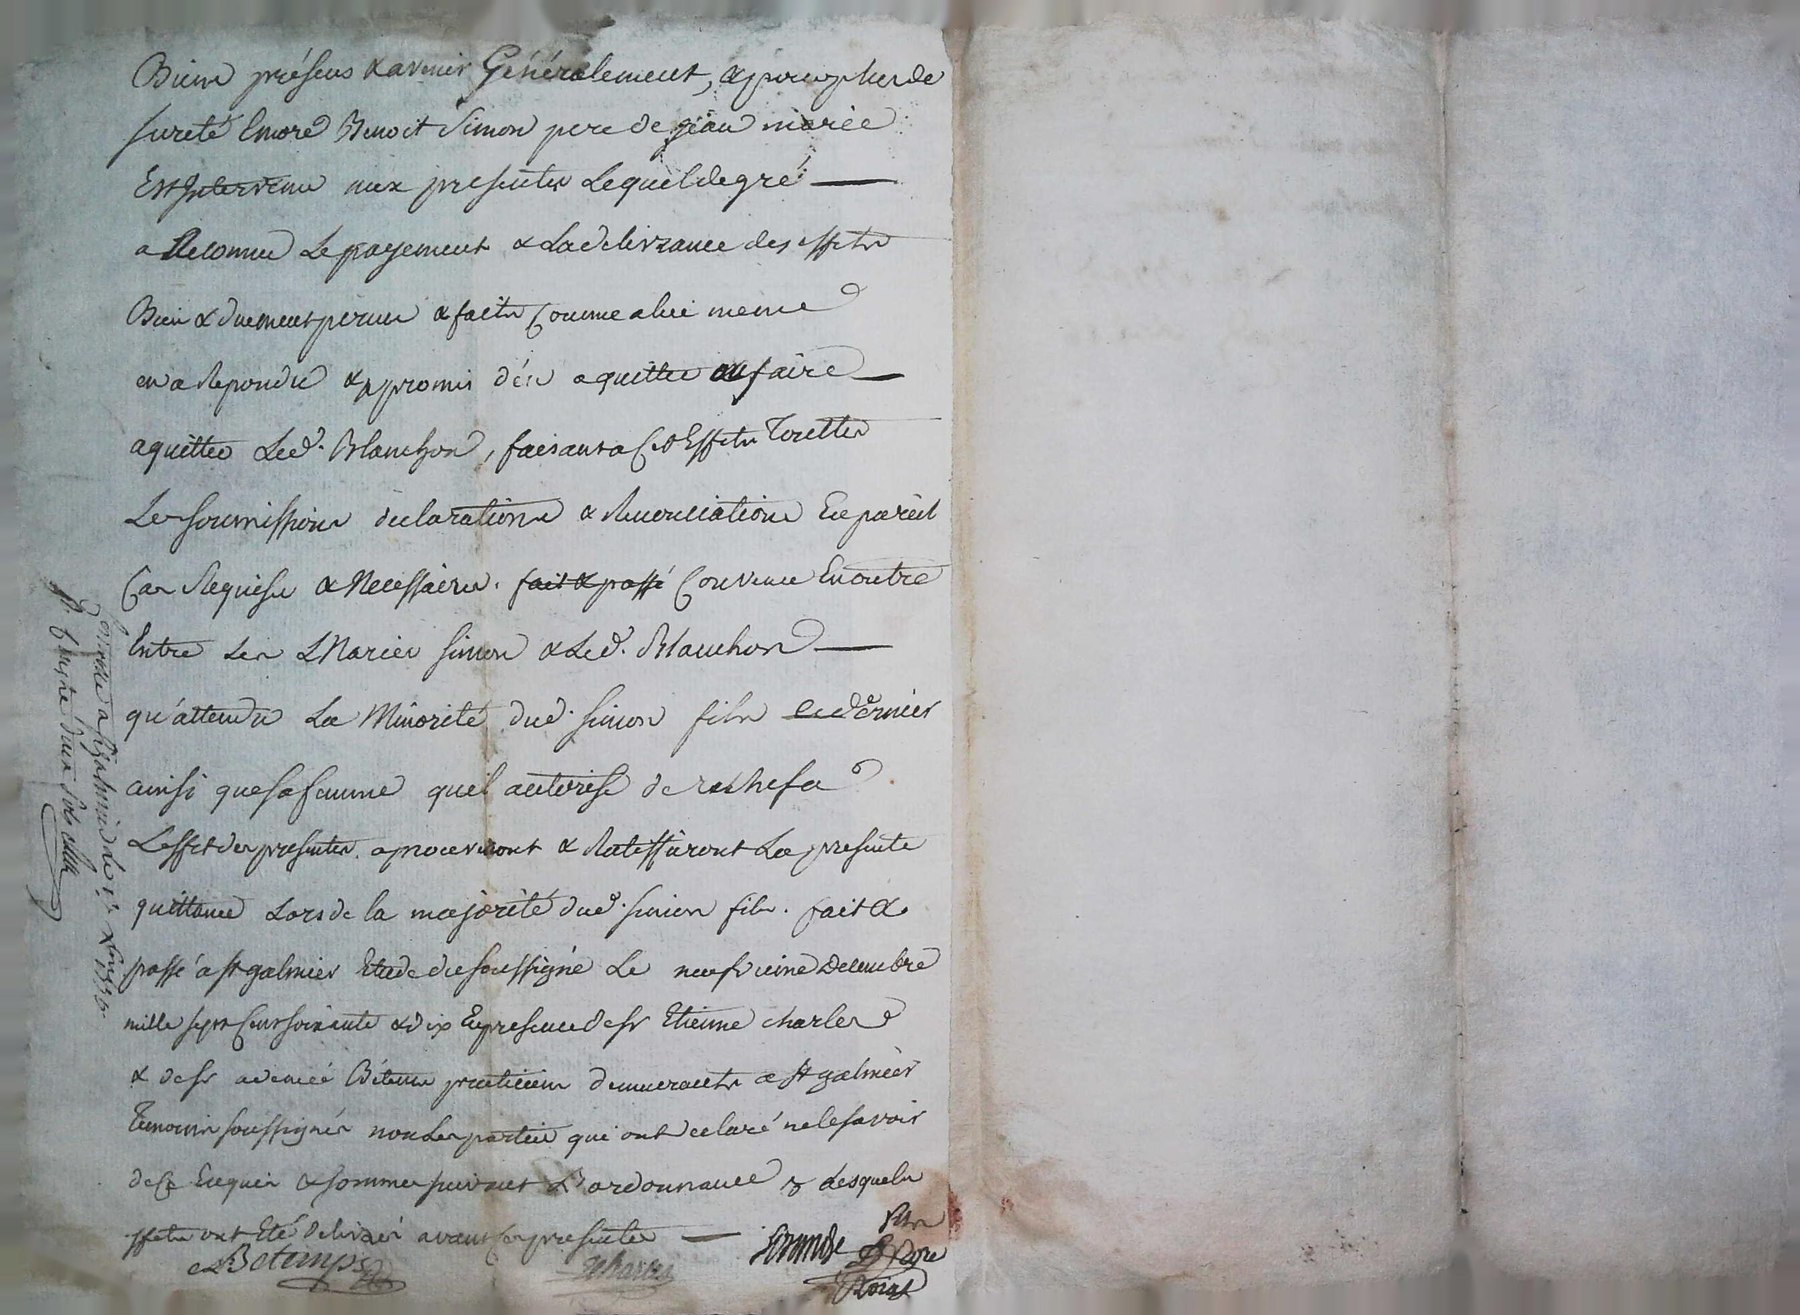 Biens présens & avenir Généralement, & pour plus de
sureté Encore Benoit Simon pere de jean marie
Est Intervenu aux presentes Lequel de gré
a Reconnu Le payement & La delivrance des effets
Bien & duement perçu & faits Comme a lui meme
en a Repondu & promis d'en aquitter ou faire
aquitter Led. Blanchon, faisant a Cet Effets Touttes
Les soumissions declarations & Renonciations En pareil
Cas Requises & Necessaires. fait & passé Convenu En outre
Entre Les Mariés simon & Led. Blanchon
qu'attendu La Minorité dud. simon fils ce dernier
ainsi que sa femme quil autorise de
L'effet des presentes aprouveront & Ratiffiront La presente
quittance Lors de la majorité dud. simon fils. fait &
passé a St galmier Etude du soussigné Le neufvieme decembre
mille sept Cent soixante & dix En presence de sr Etienne charles
& de sr praticiens demeurants a St galmier
Temoins soussignés non Les parties qui ont declaré ne le savoir
de Ce Enquis & sommes suivant L'ordonnance & Lesquels
effets ont Eté delivrés avant Les presentes
Betemps
Charles
Ponte
Controllé a St galmier le